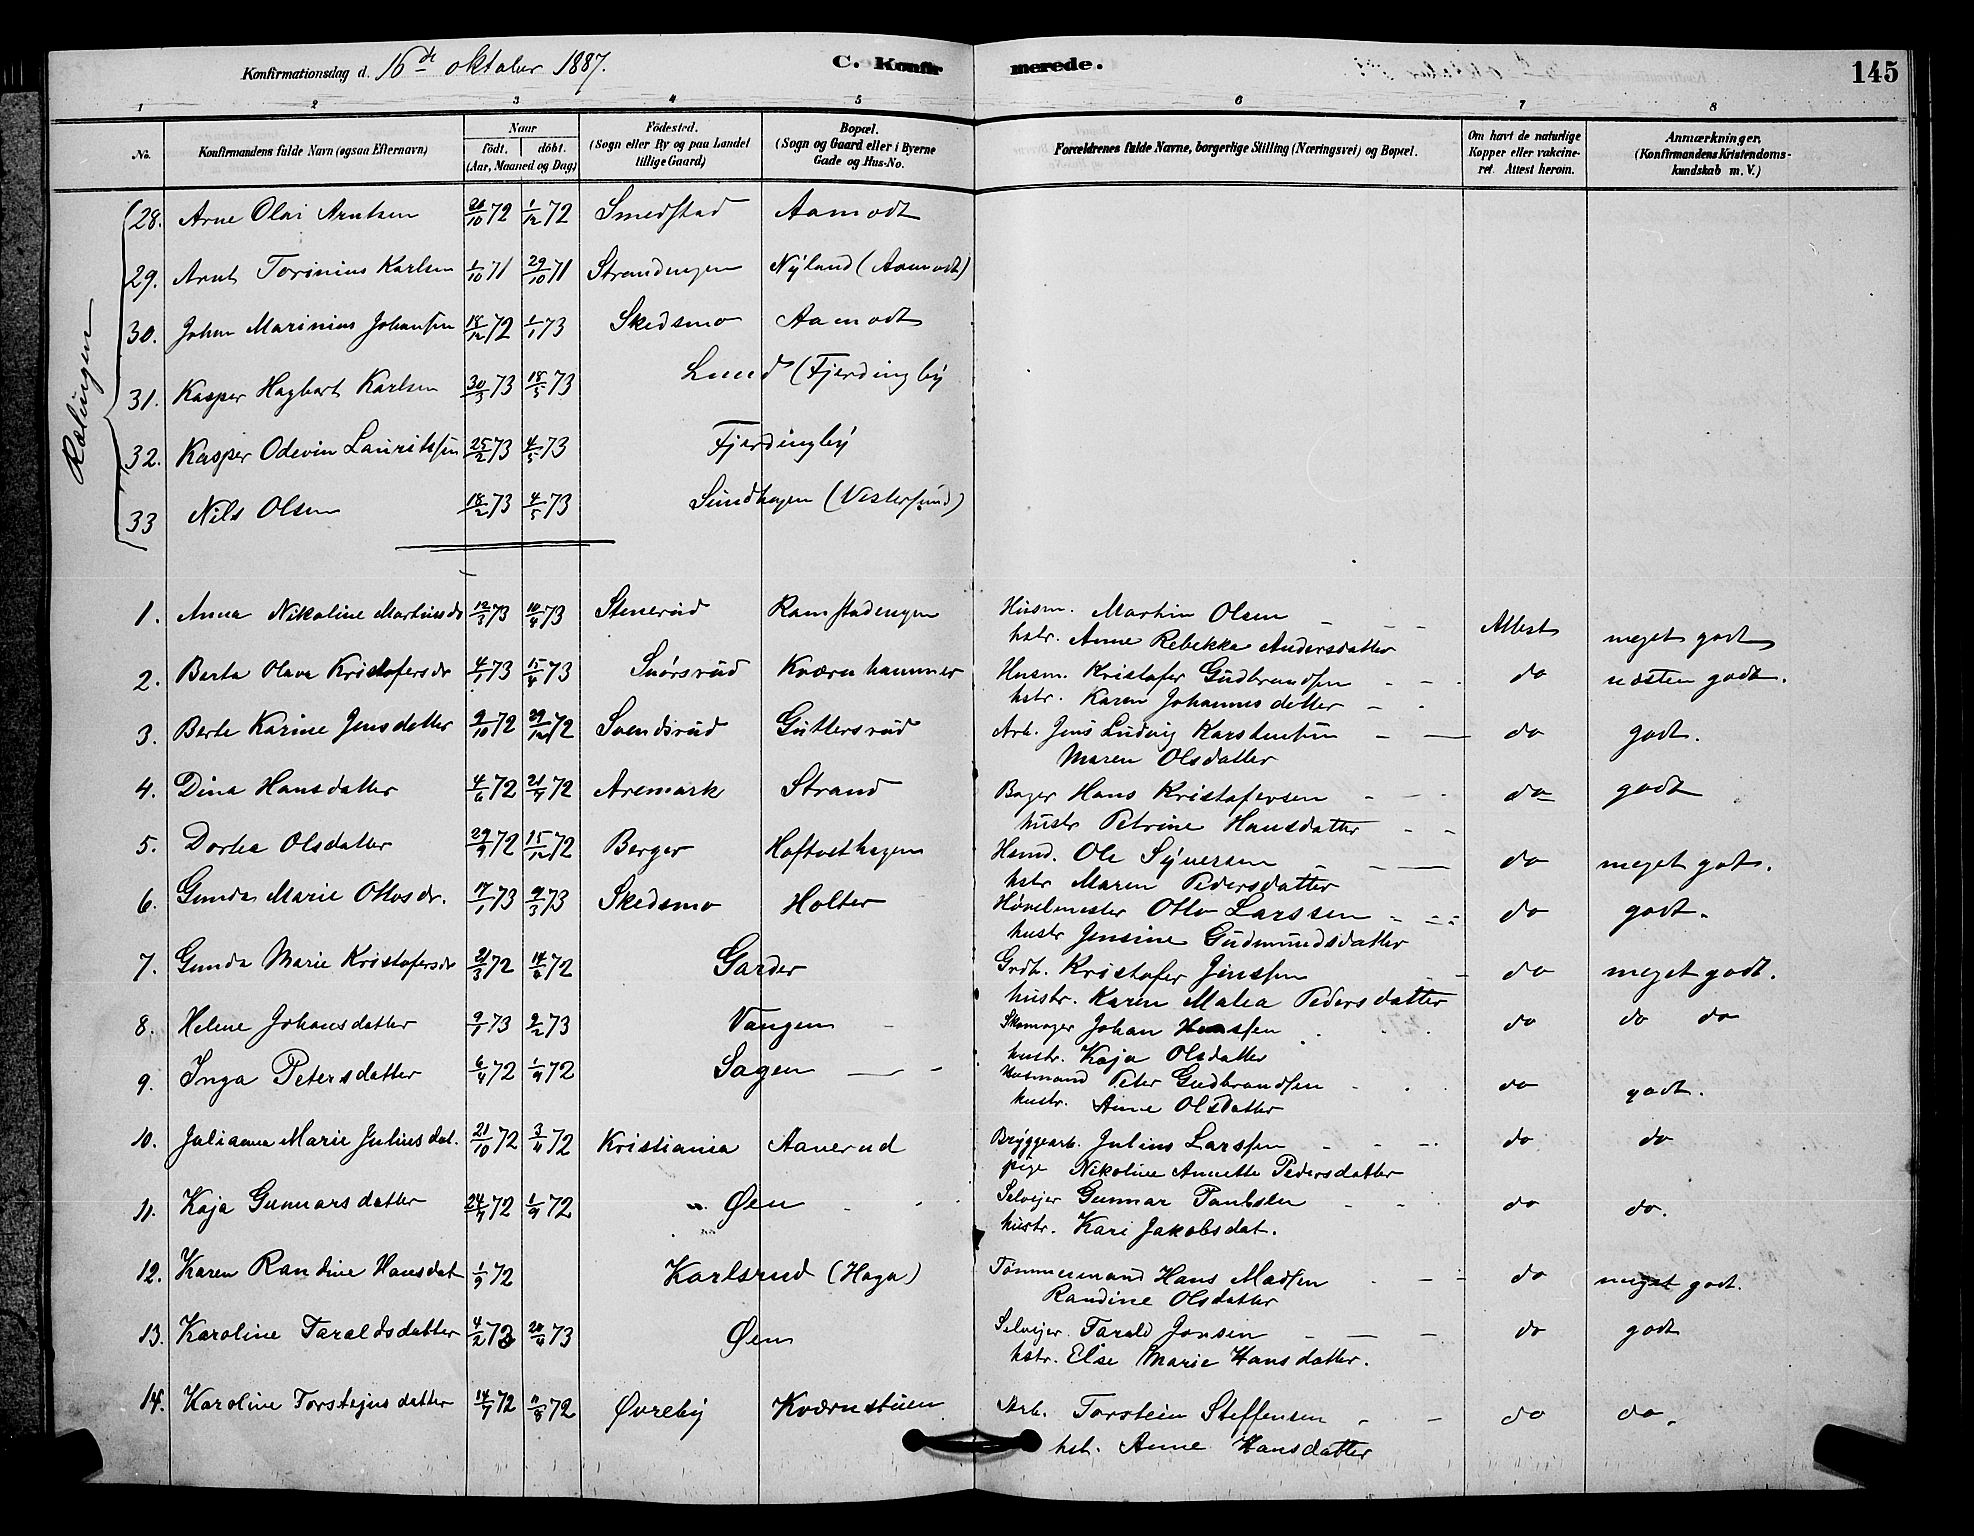 Konfirmationsdag d. 16de oktober 1887. C. Konfirmerede. 145
1 2 3 4 5 6 7 8
No. Konfirmandens fulde Navn (ogsaa Efternavn) Naar født. døbt. (Aar, Maaned og Dag) Födested. (Sogn eller By og paa Landet tillige Gaard) Bopæl. (Sogn og Gaard eller i Byerne Gade og Hus-No. Forældrenes fulde Navne, borgerlige Stilling (Næringsvei) og Bopæl. Om havt de naturlige Kopper eller vakcineret. Attest herom. Anmærkninger, (Konfirmandens Kristendomskundskab m. V.)
Rælingen
28. Arne Olai Arntsen 20/10 72 1/12 72 Smedstad Aamodt
29. Arnt Torinius Karlsen 1/10 71 29/10 71 Strandengen Nyland (Aamodt)
30. Johan Marinius Johansen 18/12 72 1/1 73 Skedsmo Aamodt
31. Kasper Hagbart Karlsen 30/3 73 18/5 73 Lund (Fjerdingby
32. Kasper Odevin Lauritssen 25/2 73 4/5 73 Fjerdingby
33 Nils Olsen 18/2 73 4/5 73 Sundhagen (Vestersund)
1. Anna Nikoline Martinsdr 12/3 73 10/4 73 Stenerud Ramstadengen Husm. Martin Olsen - - -
hstr. Anne Rebekka Andersdatter Attest meget godt
2. Berta Olava Kristofersdr 4/1 73 15/4 73 Snørsrud Kværnhammer Husm. Kristofer Gudbrandsen - - - do næsten godt.
hstr. Karen Johannesdatter - -
3. Berte Karine Jensdatter 9/10 72 29/12 72 Svendsrud Guttersrud Arb. Jens Ludvig Karstensen - — do godt.
Maren Olsdatter
4. Dina Hansdatter 4/6 72 21/7 72 Aremark Strand Bager Hans Kristofersen - - - do godt
hustr Petrine Hansdatter - -
5. Dortea Olsdatter 29/9 72 15/12 72 Berger Hoftvethagen Husmd. Ole Syversen - — do meget godt.
hstr Maren Pedersdatter
6. Gunda Marie Ottosdr. 17/1 73 9/3 73 Skedsmo Holter Høvelmester Otto Larssen - - - do godt.
hustr Jensine Gudmundsdatter
7. Gunda Marie Kristofersdr 21/3 72 14/4 72 Garder Grdb. Kristofer Jenssen - do meget godt.
hustr. Karen Malea Pedersdatter
8. Helene Johansdatter 9/1 73 9/2 73 Vangen - Skomager Johan Hanssen do do do
hustr. Kaja Olsdatter
9. Inga Petersdatter 6/4 72 1/9 72 Sagen — - Husmand Peter Gudbrandsen - do godt.
hustr. Anne Olsdatter
10. Julianna Marie Juliusdat. 21/10 72 3/11 72 Kristiania Aanerud Bryggearb. Julius Larssen - - - do do
pige Nikoline Annette Pedersdatter
11. Kaja Gunnarsdatter 24/7 72 1/9 72 Øen Selvejer Gunnar Paulsen - - do do.
hustr. Kari Jakobsdat.
12. Karen Randine Hansdat 1/9 72 Karlsrud (Haga) Tømmermand Hans Madsen - - do meget godt.
Randine Olsdatter
13. Karoline Taraldsdatter 4/2 73 20/4 73 Øen Selvejer. Tarald Jonsen - — - do godt
hstr. Else Marie Hansdatter.
14. Karoline Torstejnsdatter 14/7 72 11/8 72 Øvreby Kværnstuen Arb. Torstein Steffensen - - do do.
hst. Anne Hansdatter